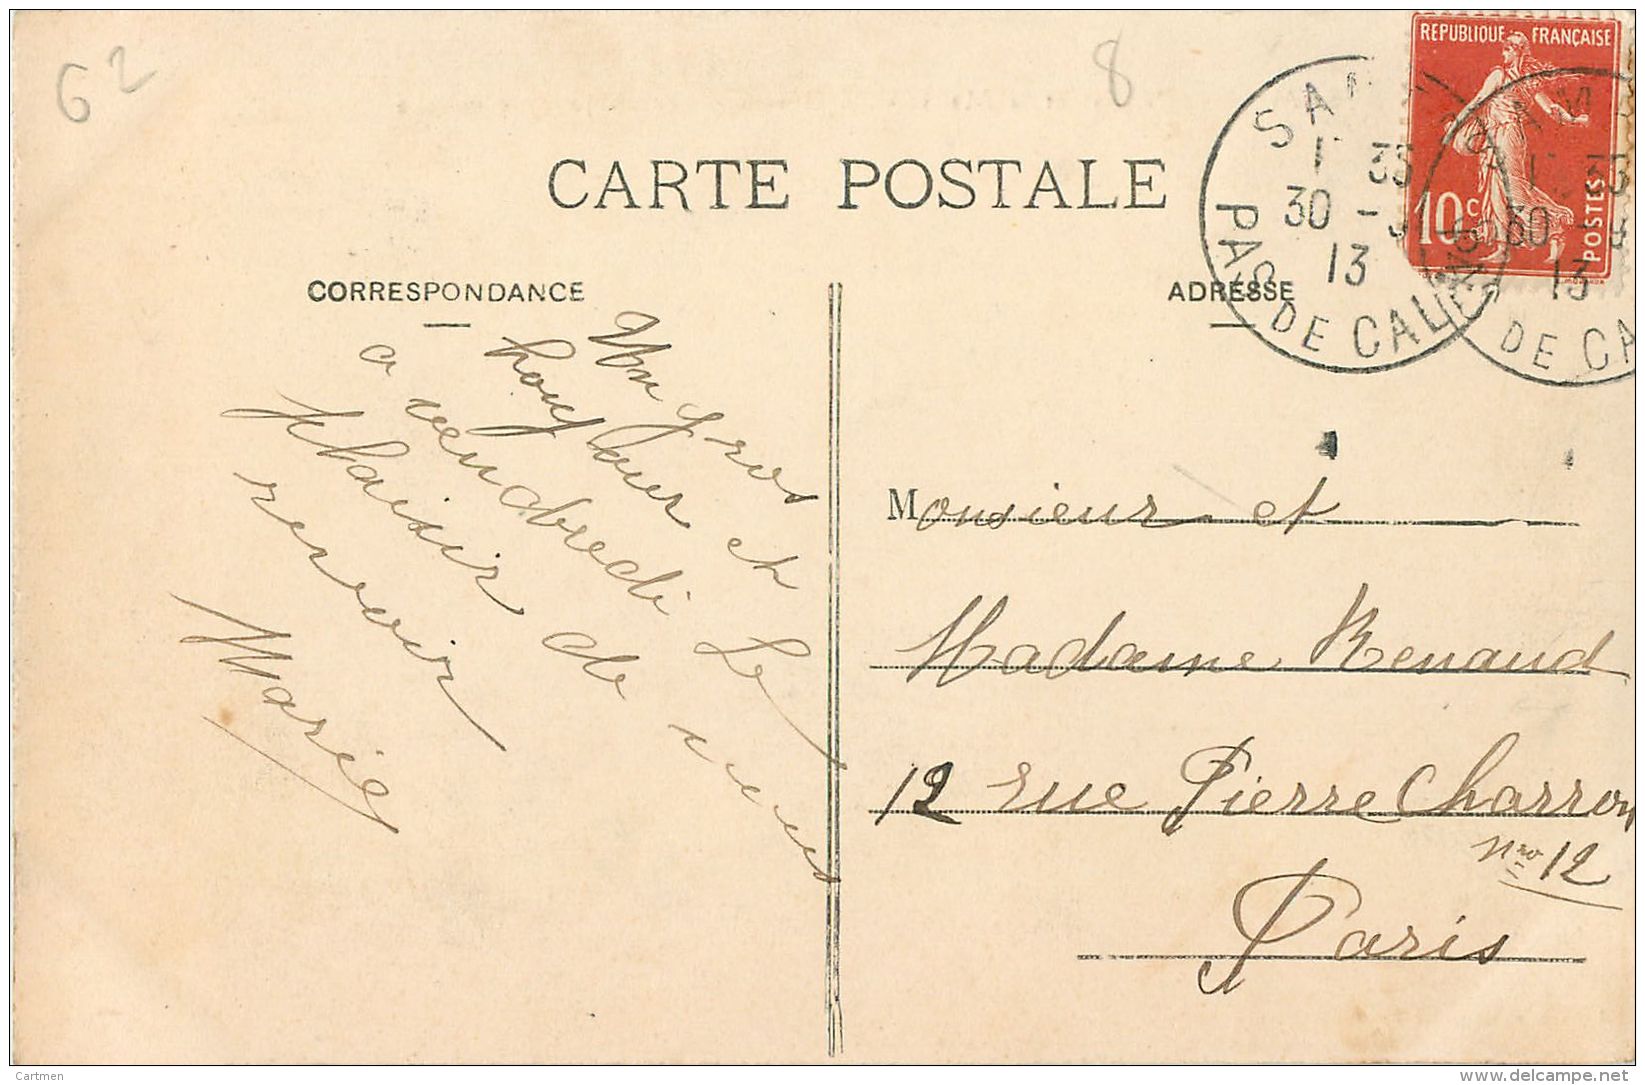 62
8
REPUBLIQUE FRANÇAISE
10c
POSTES
35
30 -
13
PAS DE CALAIS
30
13
DE CA
CARTE POSTALE
CORRESPONDANCE
ADRESSE
Un gros
bonjour et
a vendredi Le
plaisir de vous
revoir
Marie
Monsieur et
Madame Renaud
12 rue Pierre Charron
nro 12
Paris
Cartmen
delcampe.net